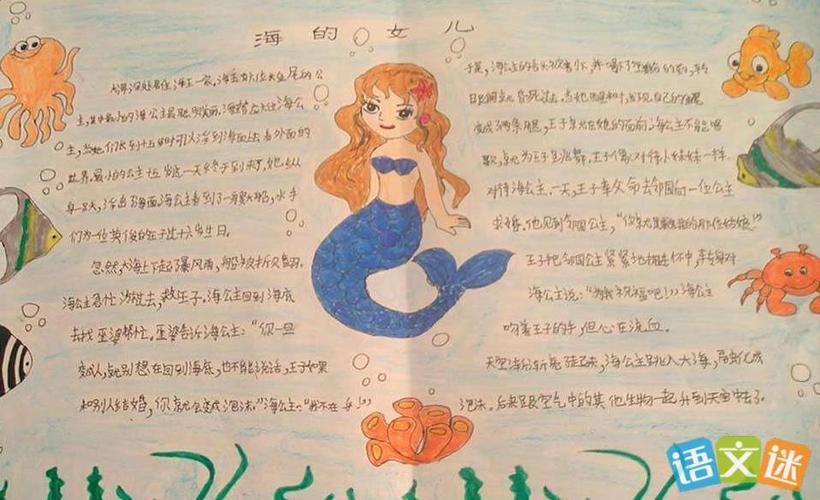 海的女儿
大海深处居住海王一家。海王有六位大鱼尾的公
主，其中最小的海公主最聪明美丽。海王答应六位海公
主，当她们长到十五岁时可以浮到海面上去看外面的
世界，最小的公主也一天终于到来了，她从
早一天，浮出海面。海公主看到了一艘大船，水手
们为一位英俊的王子过十六岁生日。
忽然，大海上下起暴风雨，船被折断
海公主急忙游过去，救王子。海公主回到海底
去找巫婆帮忙。巫婆告诉海公主：“你一旦
变成人，就别想在回到海底，也不能说话，王子如果
和别人结婚，你就会变成泡沫。”海公主：“我不在乎！”
于是，海公主的舌头被割下，并喝下了
昏死过去。当她醒来时，发现自己的鱼尾
变成了两条腿，王子来到在她的面前海公主不能唱
歌，就为王子跳舞，王子像对待小妹妹一样
对待海公主。一天，王子奉父命去邻国向一位公主
求婚。他见到邻国公主，“你就是救我的那位姑娘！”
王子把邻国公主紧紧地拥进怀中，转身对
海公主说：“为我祝福吧！”海公主
吻着王子的手，但心在流血。
天空渐渐亮起来，海公主跳入大海，变化成
泡沫。后来跟空气中的其他生物一起升到天空中去了。
语文迷